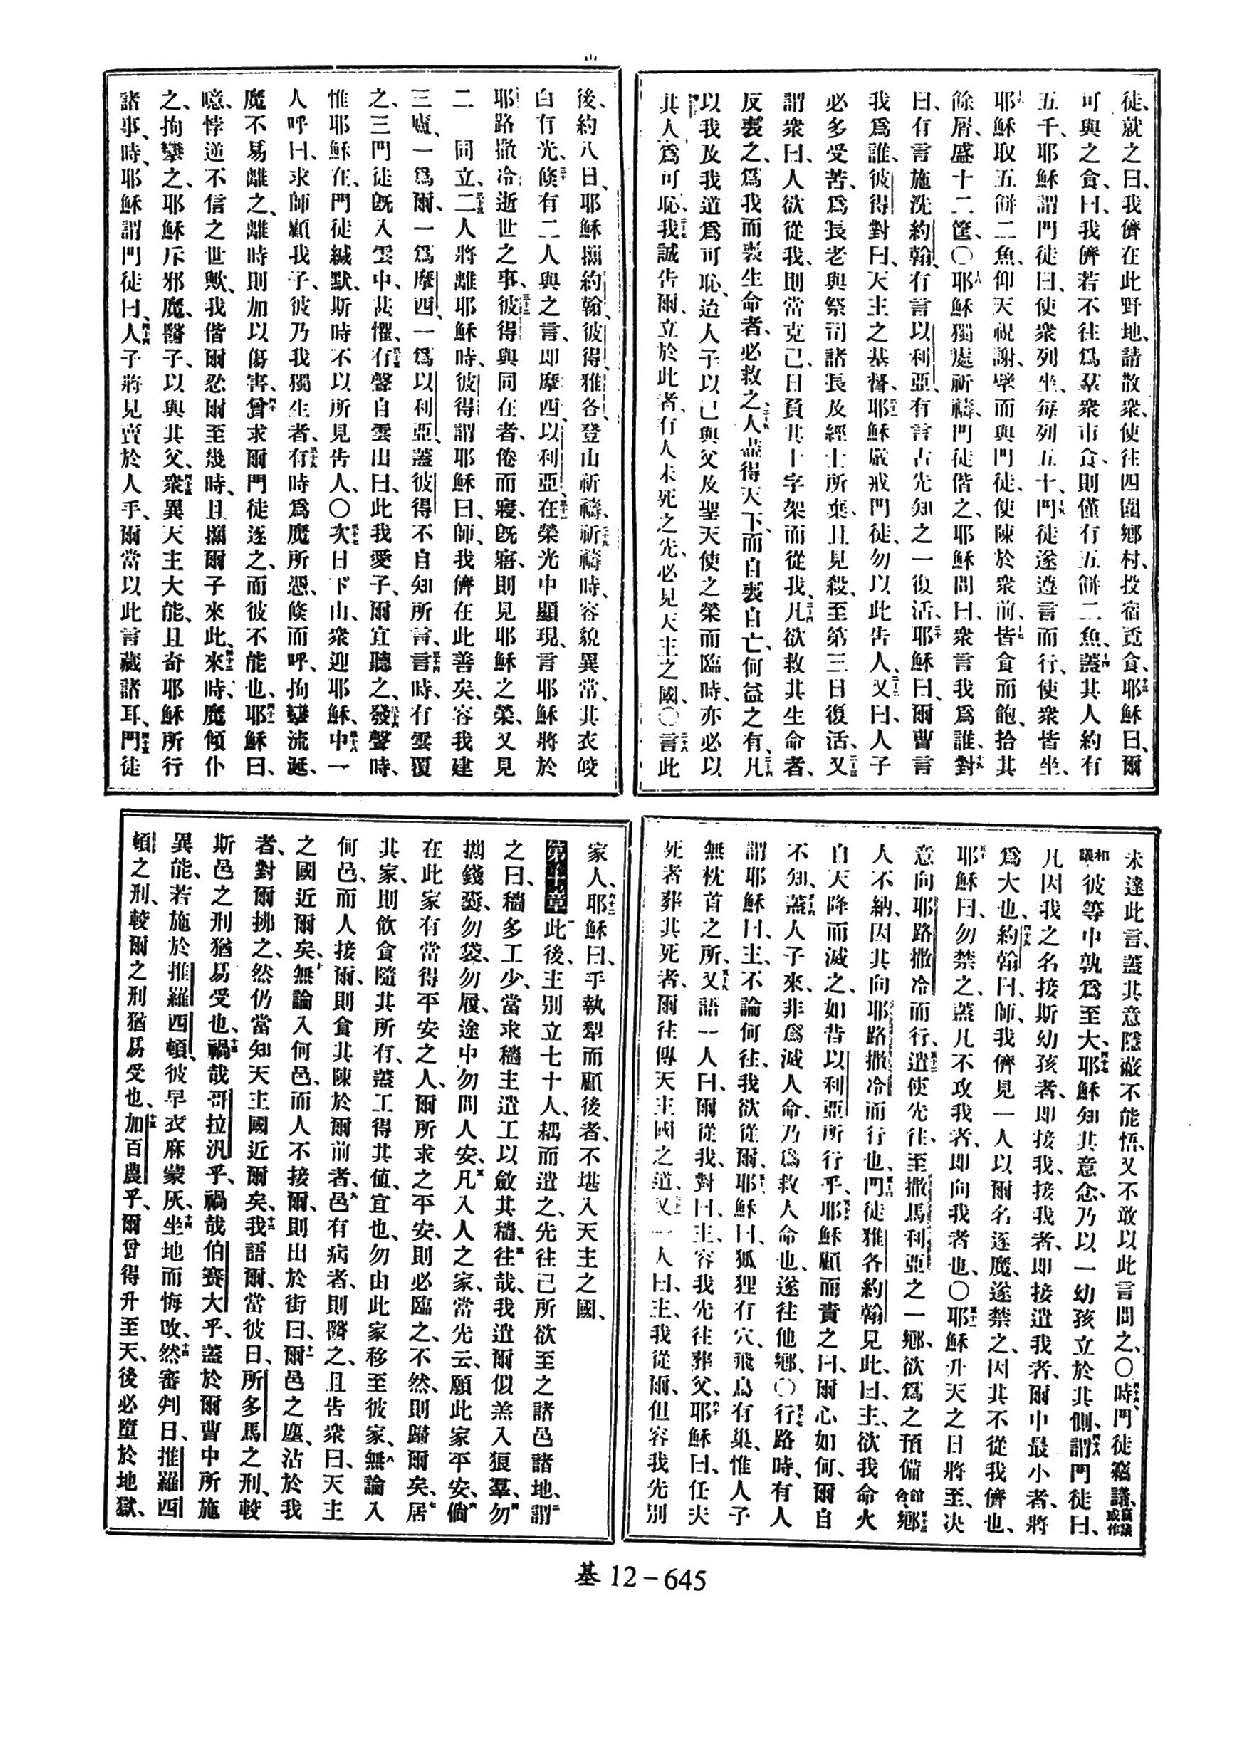 徒、就之曰、我儕在此野地、請散衆、使往四圍鄉村、投宿覓食、耶穌曰、爾
可與之食、曰、我儕若不往爲羣衆市食、則僅有五餅二魚、蓋其人約有
五千、耶穌謂門徒曰、使衆列坐、每列五十、門徒遂遵言而行、使衆皆坐、
耶穌取五餅二魚、仰天祝謝、擘而與門徒、使陳於衆前、皆食而飽、拾其
餘屑、盛十二筐〇耶穌獨處祈禱、門徒偕之、耶穌問曰、衆言我爲誰、對
曰、有言施洗約翰、有言以利亞、有言古先知之一復活、耶穌曰、爾曹言
我爲誰、彼得對曰、天主之基督、耶穌嚴戒門徒、勿以此告人、又曰、人子
必多受苦、爲長老與祭司諸長及經士所棄、且見殺、至第三日復活、又
謂衆曰、人欲從我、則當克己、日負其十字架而從我、凡欲救其生命者、
反喪之、爲我而喪生命者、必救之、人盡得天下、而自喪自亡、何益之有、凡
以我及我道爲可恥、迨人子以己與父及聖天使之榮而臨時、亦必以
其人爲可恥、我誠告爾、立於此者、有人未死之先、必見天主之國〇言此
後、約八日、耶穌攜約翰、彼得、雅各、登山祈禱、祈禱時、容貌異常、其衣皎
白有光、倏有二人與之言、即摩西、以利亞、在榮光中顯現、言耶穌將於
耶路撒冷逝世之事、彼得與同在者、倦而寢、旣寤、則見耶穌之榮、又見
二 同立、二人將離耶穌時、彼得謂耶穌曰、師、我儕在此善矣、容我建
三廬、一爲爾、一爲摩西、一爲以利亞、蓋彼得不自知所言、言時、有雲覆
之、三門徒旣入雲中、甚懼、有聲自雲出曰、此我愛子、爾宜聽之、發聲時、
惟耶穌在、門徒緘默、斯時不以所見告人、〇次日下山、衆迎耶穌、中一
人呼曰、求師顧我子、彼乃我獨生者、有時爲魔所憑、倏而呼、拘攣流涎、
魔不易離之、離時則加以傷害、曾求爾門徒逐之、而彼不能也、耶穌曰、
噫、悖逆不信之世歟、我偕爾忍爾至幾時、且攜爾子來此、來時、魔傾仆
之、拘攣之、耶穌斥邪魔、醫子、以與其父、衆異天主大能、且奇耶穌所行
諸事、時、耶穌謂門徒曰、人子將見賣於人手、爾當以此言藏諸耳、門徒
未達此言、蓋其意隱蔽不能悟、又不敢以此言問之、〇時門徒竊議、竊議或作
和議彼等中孰爲至大、耶穌知其意念、乃以一幼孩立於其側、謂門徒曰、
凡因我之名接斯幼孩者、即接我、接我者、即接遣我者、爾中最小者、將
爲大也、約翰曰、師、我儕見一人以爾名逐魔、遂禁之、因其不從我儕也、
耶穌曰、勿禁之、蓋凡不攻我者、即向我者也、〇耶穌升天之日將至、决
意向耶路撒冷而行、遣使先往、至撒馬利亞之一鄉、欲爲之預備舍館、鄉
人不納、因其向耶路撒冷而行也、門徒雅各約翰見此、曰、主、欲我命火
自天降而滅之、如昔以利亞所行乎、耶穌顧而責之曰、爾心如何、爾自
不知、蓋人子來、非爲滅人命、乃爲救人命也、遂往他鄉、〇行路時、有人
謂耶穌曰、主、不論何往、我欲從爾、耶穌曰、狐狸有穴、飛鳥有巢、惟人子
無枕首之所、又語一人曰、爾從我、對曰、主、容我先往葬父、耶穌曰、任夫
死者葬其死者、爾往傳天主國之道、又一人曰、主、我從爾、但容我先別
家人、耶穌曰、手執犁而顧後者、不堪入天主之國、
第十章 此後、主別立七十人、耦而遣之、先往己所欲至之諸邑諸地、謂
之曰、穡多工少、當求穡主遣工以斂其穡、往哉、我遣爾似羔入狼羣、勿
攜錢囊、勿袋、勿履、途中勿問人安、凡入人之家、當先云、願此家平安、倘
在此家有當得平安之人、爾所求之平安、則必臨之、不然、則歸爾矣、居
其家、則飲食隨其所有、蓋工得其値、宜也、勿由此家移至彼家、無論入
何邑、而人接爾、則食其陳於爾前者、邑有病者、則醫之、且告衆曰、天主
之國近爾矣、無論入何邑、而人不接爾、則出於街曰、爾邑之塵沾於我
者、對爾拂之、然仍當知天主國近爾矣、我語爾、當彼日、所多馬之刑、較
斯邑之刑猶易受也、禍哉哥拉汎乎、禍哉伯賽大乎、蓋於爾曹中所施
異能、若施於推羅西頓、彼早衣麻蒙灰、坐地而悔改、然審判日、推羅西
頓之刑、較爾之刑猶易受也、加百農乎、爾曾得升至天、後必墮於地獄、
基 12－645